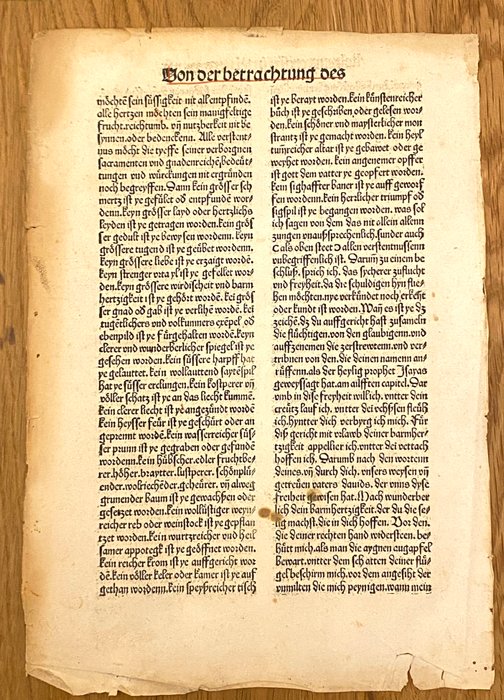 Von der betrachtung des
möchtē sein süssigkeit nit all entpfindē.
alle hertzen möchten sein manigfeltige
frucht.reichtumb. vn̄ nutzberkeit nit be
synnen.oder bedenckenn. Alle verstent-
nus möcht die tyeffe seiner verborgnen
sacramenten vnd gnadenreichē.bedeü-
tungen vnd würckungen nit ergründen
noch begreyffen. Dann kein grösser sch
mertz ist ye gefület oď entpfundē wor-
denn. keyn grösser layd oder hertzlichs
leyden ist ye getragen wordenn. kein grös
ser gedult ist ye bewysen wordenn. keyn
grössere tugend ist ye geübet wordenn.
keyn grössere liebe ist ye erzaigt wordē.
keyn strenger vrtayl ist ye gefellet wor-
den. keyn grössere wirdischeit vnd barm
hertzigkeit ist ye gehört wordē. kei grös
ser gnad oď gab ist ye verlihē wordē. kei
tugētlichers vnd volkumners exēpel oď
ebenpild ist ye fürgehalten wordē. keyn
clerer vnd wunderbelicher spiegel ist ye
gesehen worden. kein süssere harpff hat
ye gelauttet. kein wollauttend saytēspil
hat ye süsser erclungen. kein kostperer vn̄
völler schatz ist ye an das liecht kummē.
kein clerer liecht ist ye angezündt wordē
kein heysser feür ist ye geschürt oder an
geprennt wordē. kein wasserreicher süs-
ser prunn ist ye gegraben oder gefunden
wordenn. kein hübscher. edler fruchtbe-
rer. höher. braytter. lustperer. schönplü-
ender. wolriechēder. geheürer. vn̄ alweg
grunender baum ist ye gewachsen oder
gesetzt worden. kein wollüstiger weyn-
reicher reb oder weinstock ist ye gepflan
tzet worden. kein wurtzreicher vnd heil
samer appotegk ist ye geöffnet worden.
kein reicher krom ist ye auffgericht wor
dē. kein völler keler oder kamer ist ye auf
gethan wordenn. kein speyßreicher tisch
ist ye berayt worden. kein künstenreicher
bůch ist ye geschriben oder gelesen wor-
den. kein schöner vnd maysterlicher mon
strantz ist ye gemacht worden. kein heyl
tumreicher altar ist ye gebawet oder ge
weyhet worden. kein angenemer opffer
ist gott dem vatter ye geopfert worden.
kein sighaffter baner ist ye auff geworf
fen wordenn. kein herrlicher triumpf oď
sigspil ist ye begangen worden. was sol
ich sagen von dem das nit allein allenn
zungen vnaußsprechenlich. sunder auch
als oben steet ď allen verstentnussenn
vnbegriffenlich ist. Darum zu einem be
schluß. sprich ich. das sycherer zuflucht
vnd freyheit. da die schuldigen hyn flie-
hen möchten. nye verkündet noch erkent
oder kundt ist worden. Wan̄ es ist ye dz
zeichē. dz du auffgericht hast zusameln
die flüchtigen. von den glaubigenn. vnd
auffzenemen die zerstrewetenn. vnd ver-
tribnen von den. die deinen namenn an-
rüffenn. als der heylig prophet Isayas
geweyssagt hat. am ailfften capitel. Dar
vmb in dise freyheit willich. vntter dein
creütz lauf ich. vntter dei ochssen fleüh
ich. hynntter dich verbirg ich mich. Für
diß gericht mit vrlawb deiner barmher-
tzigkeit appellier ich. vntter dei vettach
hoffen ich. Darumb nach den wortenn
deines. vn̄ durch dich. vnsers weysen vn̄
getreuen vaters dauids. der vnns dyse
freiheit geweisen hat. Mach wunderber
lich dein barmhertzigkeit. der du die se-
lig machst. die in dich hoffen. Vor den.
die deiner rechten hand widersteen. be-
hüt mich. als man die aygnen augapfel
bewart. vntter dem schatten deiner flü-
gel beschirm mich. vor dem angesiht der
vnmilten die mich peynigen. wann mein